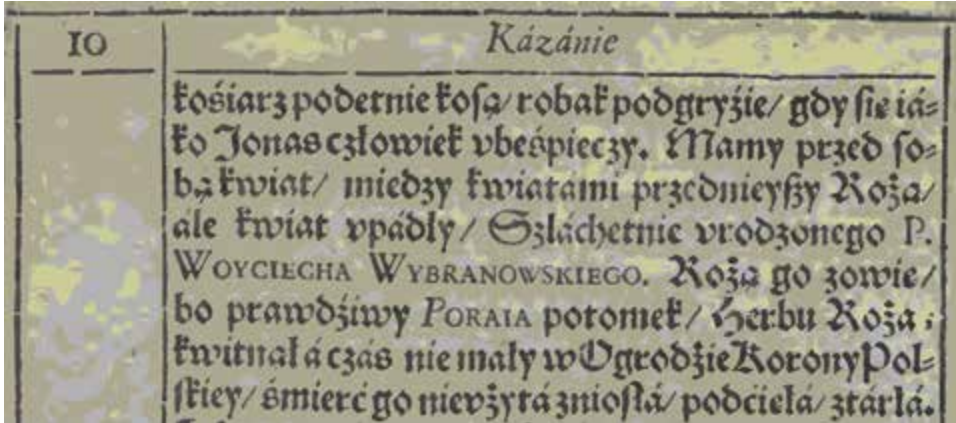 10 Kázánie
kośiarz podetnie kosą/ robak podgryźie/ gdy sie iá-
ko Jonas człowiek vbeśpieczy. Mamy przed so-
bą kwiat/ miedzy kwiatámi przednieyszy Roża/
ale kwiat vpádły/ Szláchetnie vrodzonego P.
WOYCIECHA WYBRANOWSKIEGO. Rożą go zowie/
bo prawdźiwy PORAIA potomek/ Herbu Roża:
kwitnął á czás nie mały w Ogrodźie Korony Pol-
skiey/ śmierć go nieużyta zniosłá/ podciełá/ ztárłá.